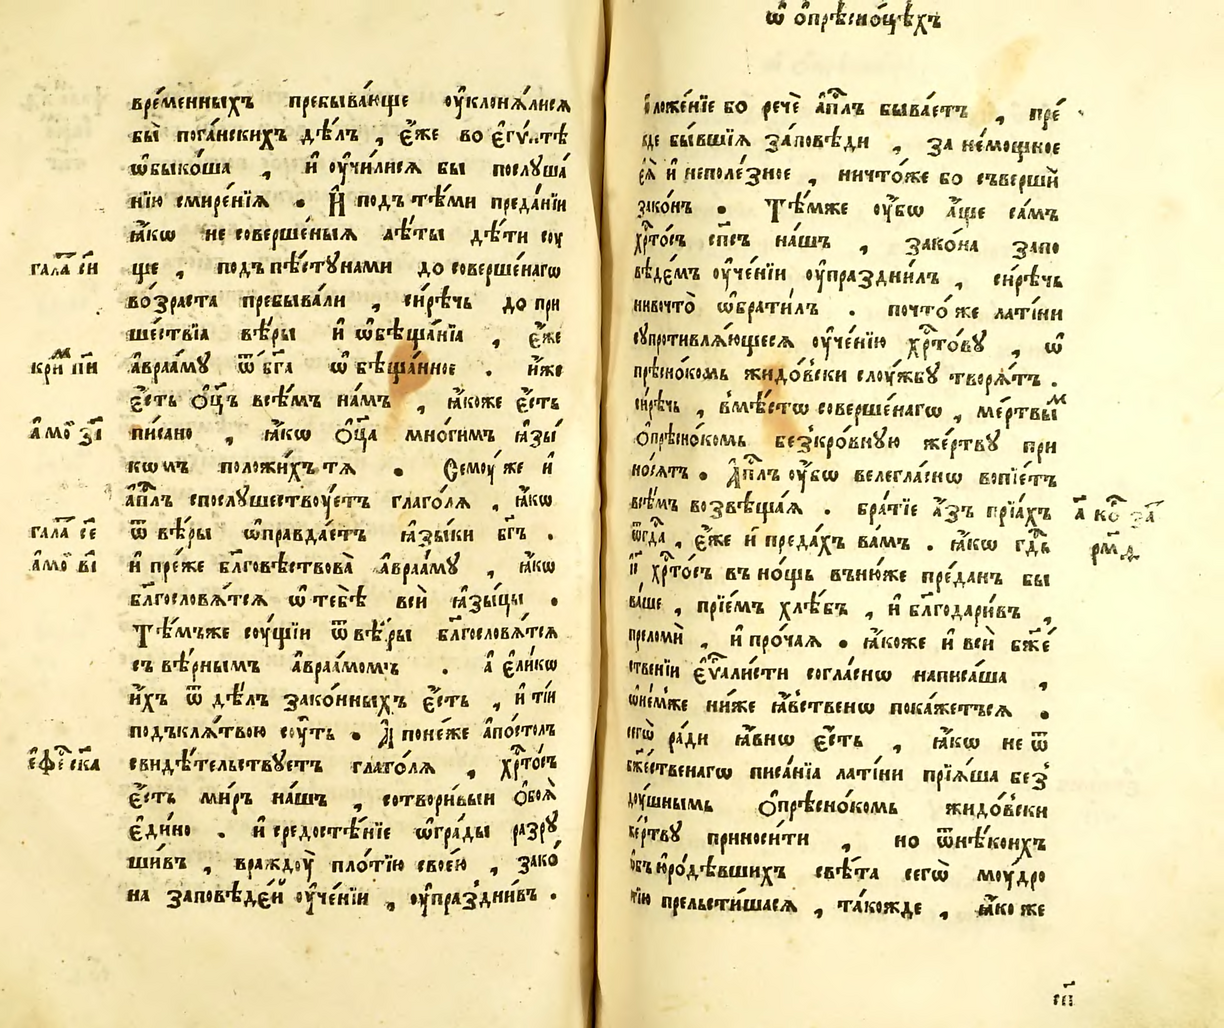 вре́менныхъ пребыва́юще оу҆клонѧ́лисѧ
бы̀ пога́нскихъ дѣ́лъ , є҆́же во
ѡ҆быко́ша , и҆ оу҆чи́лисѧ бы послуша́
нїю смире́нїѧ . И҆ подъ тѣ́ми преда́нїи
ꙗ҆́кѡ не соверше́ныѧ лѣ́ты дѣ́ти соу
гала̑ си
ще , подъ пѣ́стꙋнами до соверше́нагѡ
во́зраста пребыва́ли , си́рѣчь до при
ше́ствїа вѣ́ры и҆ ѡ҆бѣща́нїа , є҆́же
а҆враа́мꙋ ѿ бг҃а ѡ҆бѣща́нное . и҆́же
є҆́сть ѻ҆ц҃ъ всѣ́мъ на́мъ , ꙗ҆́коже є҆́сть
а҆мо з҃і
писано , ꙗ҆́кѡ ѻ҆ц҃а мно́гимъ ꙗ҆зы́
кѡмъ положи́хъ тѧ . Семоу́ же и҆
а҆п҃лъ спослꙋшествоу́етъ глаго́лѧ , ꙗ҆́кѡ
гала̑ се
ѿ вѣ́ры ѡ҆правда́етъ ꙗ҆зы́ки бг҃ъ .
а҆мо в҃і
и҆ пре́же бл҃говѣствова̀ а҆враа́мꙋ , ꙗ҆́кѡ
бл҃гословѧ́тсѧ ѡ҆ тебѣ̀ всѝ ꙗ҆зы́цы .
Тѣ́мъже соу́щїи ѿ вѣ́ры бл҃гословѧ́тсѧ
съ вѣ́рнымъ а҆враа́момъ . а҆ є҆ли́кѡ
и҆́хъ ѿ дѣ́лъ зако́нныхъ є҆́сть , и҆ тїи
подъ клѧ́твою соу́ть . А҆ поне́же а҆по́столъ
є҆фе ска
свидѣ́тельствꙋетъ глаго́лѧ , хр҃то́съ
є҆́сть ми́ръ на́шъ , сотвори́выи ѻ҆боѧ̀
є҆ди́но . и҆ средостѣ́нїе ѡ҆гра́ды разрꙋ
ши́въ , враждоу̀ пло́тїю свое́ю , зако́
на за́повѣдей оу҆че́нїи , оу҆праздни́въ .
ѡ҆ ѻ҆прѣсно́цѣхъ
ложе́нїе бо речѐ а҆п҃лъ быва́етъ , пре́
жде бы́вшїѧ за́повѣди , за не́мощное
є҆ѧ̀ и҆ неполе́зное , ничто́же бо съвершѝ
зако́нъ . Тѣ́мже оу҆́бѡ а҆́ще са́мъ
хр҃то́съ сп҃съ на́шъ , зако́на запо
вѣдемъ оу҆че́нїи оу҆праздни́лъ , си́рѣчь
нивочто̀ ѡ҆брати́лъ . почто́ же лати́ни
супротивлѧ́ющесѧ оу҆че́нїю хр҃то́вꙋ , ѡ҆
прѣсно́комъ жидо́вски слоу́жбꙋ творѧ́тъ .
си́рѣчь , вмѣ́стѡ соверше́нагѡ , ме́ртвымъ
ѻ҆прѣсно́комъ безкро́внꙋю же́ртвꙋ при
но́сѧтъ . А҆п҃лъ оу҆́бѡ велегла́снѡ вопїе́тъ
всѣ́мъ возвѣща́ѧ . бра́тїе а҆́зъ прїѧ́хъ
ѿ гд҃а , є҆́же и҆ преда́хъ ва́мъ . ꙗ҆́кѡ гд҃ь
і҆с҃ хр҃то́съ въ но́щь въ ню́же пре́данъ бы
ва́ше , прїе́мъ хлѣ́бъ , и҆ бл҃годари́въ ,
преломѝ , и҆ про́чаѧ . ꙗ҆́коже и҆ всѝ бж҃е́
ственїи є҆ѵа҃ли́сти согла́снѡ написа́ша ,
ѡ҆ не́мже ни́же ꙗ҆́вственѡ пока́жетъсѧ .
сегѡ̀ ра́ди ꙗ҆́внѡ є҆́сть , ꙗ҆́кѡ не ѿ
бж҃е́ственагѡ писа́нїа лати́ни прїѧ́ша без̾
доу́шнымъ ѻ҆прѣсно́комъ жидо́вски
же́ртвꙋ приноси́ти , но ѿ нѣ́коихъ
ѻ҆бъюро́дѣвшихъ свѣ́та сегѡ̀ моу́дро
стїю прельсти́шасѧ , та́кожде , ꙗ҆́коже